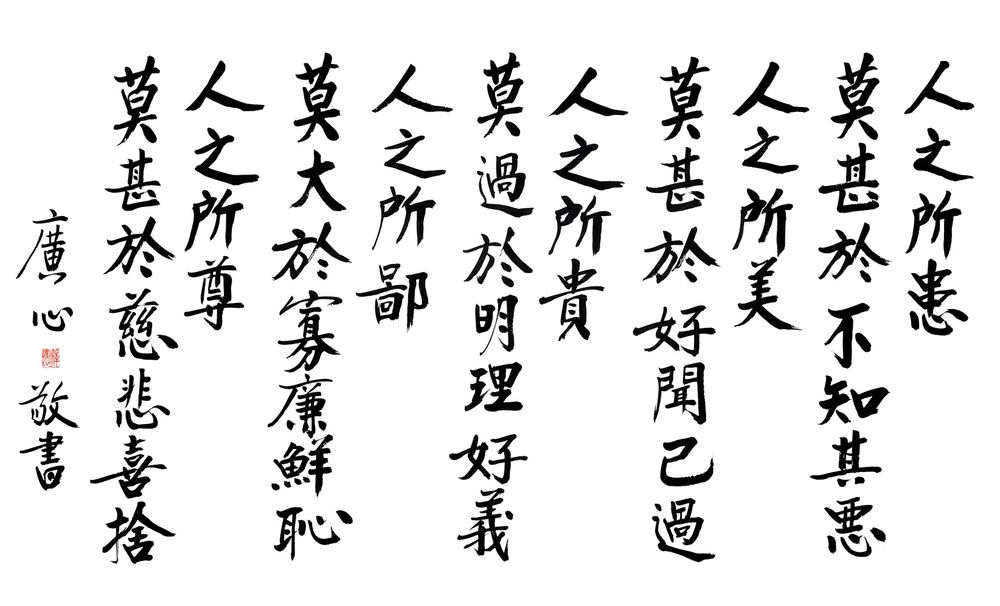 人之所患
莫甚於不知其恶
人之所美
莫甚於好聞己過
人之所貴
莫過於明理好義
人之所鄙
莫大於寡廉鮮恥
人之所尊
莫甚於慈悲喜捨
廣心
敬書